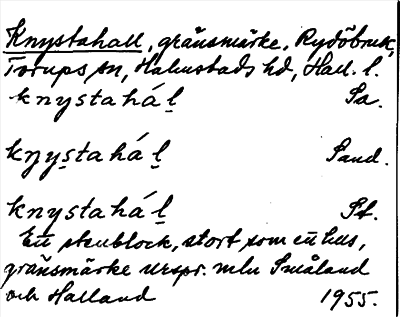 Knystahall, gränsmärke, Rydöbruk,
Torups sn, Halmstads hd, Hall. l.
knystahál̲ Sa.
kŋys̲tahál̲ Sand.
knystahál̲ St.
Ett stenblock, stort som ett hus,
gränsmärke urspr. mln Småland
och Halland 1955.